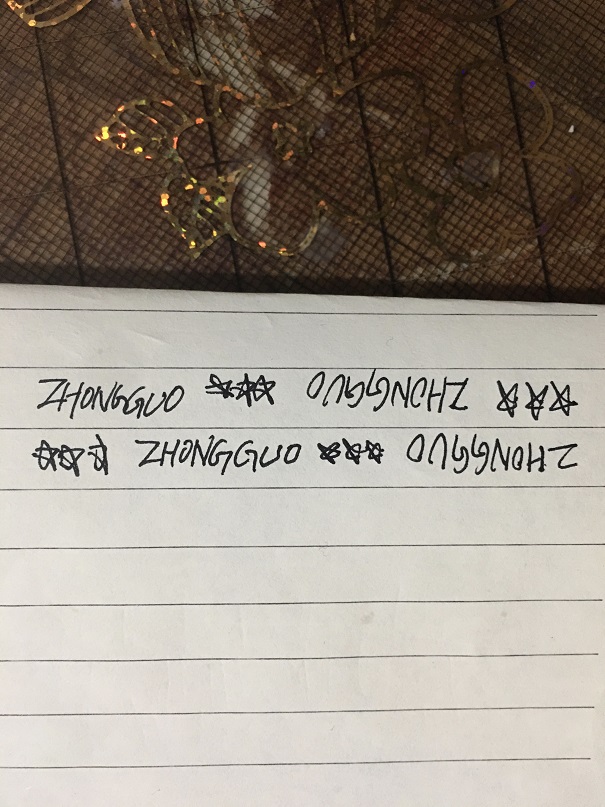 ZHONGGUO ☆☆☆ ZHONGGUO ☆☆☆
☆☆☆ ZHONGGUO ☆☆☆ ZHONGGUO